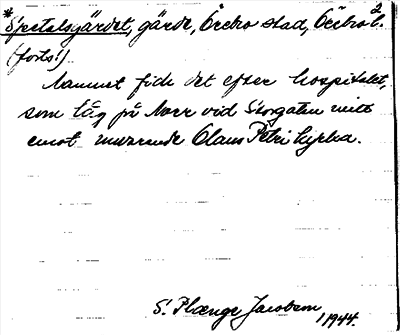 2.
*Spetalsgärdet, gärde, Örebro stad, Örebro l.
(forts.)
Namnet fick det efter hospitalet,
som låg på Norr vid Storgatan mitt
emot nuvarande Olaus Petri kyrka.
S. Plænge Jacobson
1944.